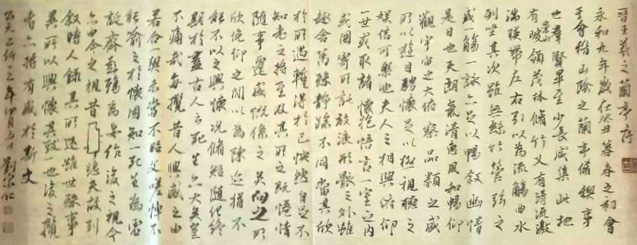 晋王羲之蘭亭序
永和九年歲在癸丑暮春之初會
于會稽山陰之蘭亭脩禊事
也羣賢畢至少長咸集此地
有崇山峻領茂林脩竹又有清流激
湍暎帶左右引以為流觴曲水
列坐其次雖無絲竹管弦之
盛一觴一詠亦足以暢敘幽情
是日也天朗氣清惠風和暢仰
觀宇宙之大俯察品類之盛
所以遊目騁懷足以極視聽之
娛信可樂也夫人之相與俯仰
一世或取諸懷抱悟言一室之內
或因寄所託放浪形骸之外雖
趣舍萬殊靜躁不同當其欣
於所遇暫得於己快然自足不
知老之將至及其所之既惓情
隨事遷感慨係之矣向之所
欣俛仰之間以為陳迹猶不
能不以之興懷況脩短隨化終
期於盡古人云死生亦大矣豈
不痛哉每攬昔人興感之由
若合一契未嘗不臨文嗟悼不
能喻之於懷固知一死生為虛
誕齊彭殤為妄作後之視今
亦由今之視昔悲夫故列
敘時人錄其所述雖世殊事
異所以興懷其致一也後之攬
者亦將有感於斯文